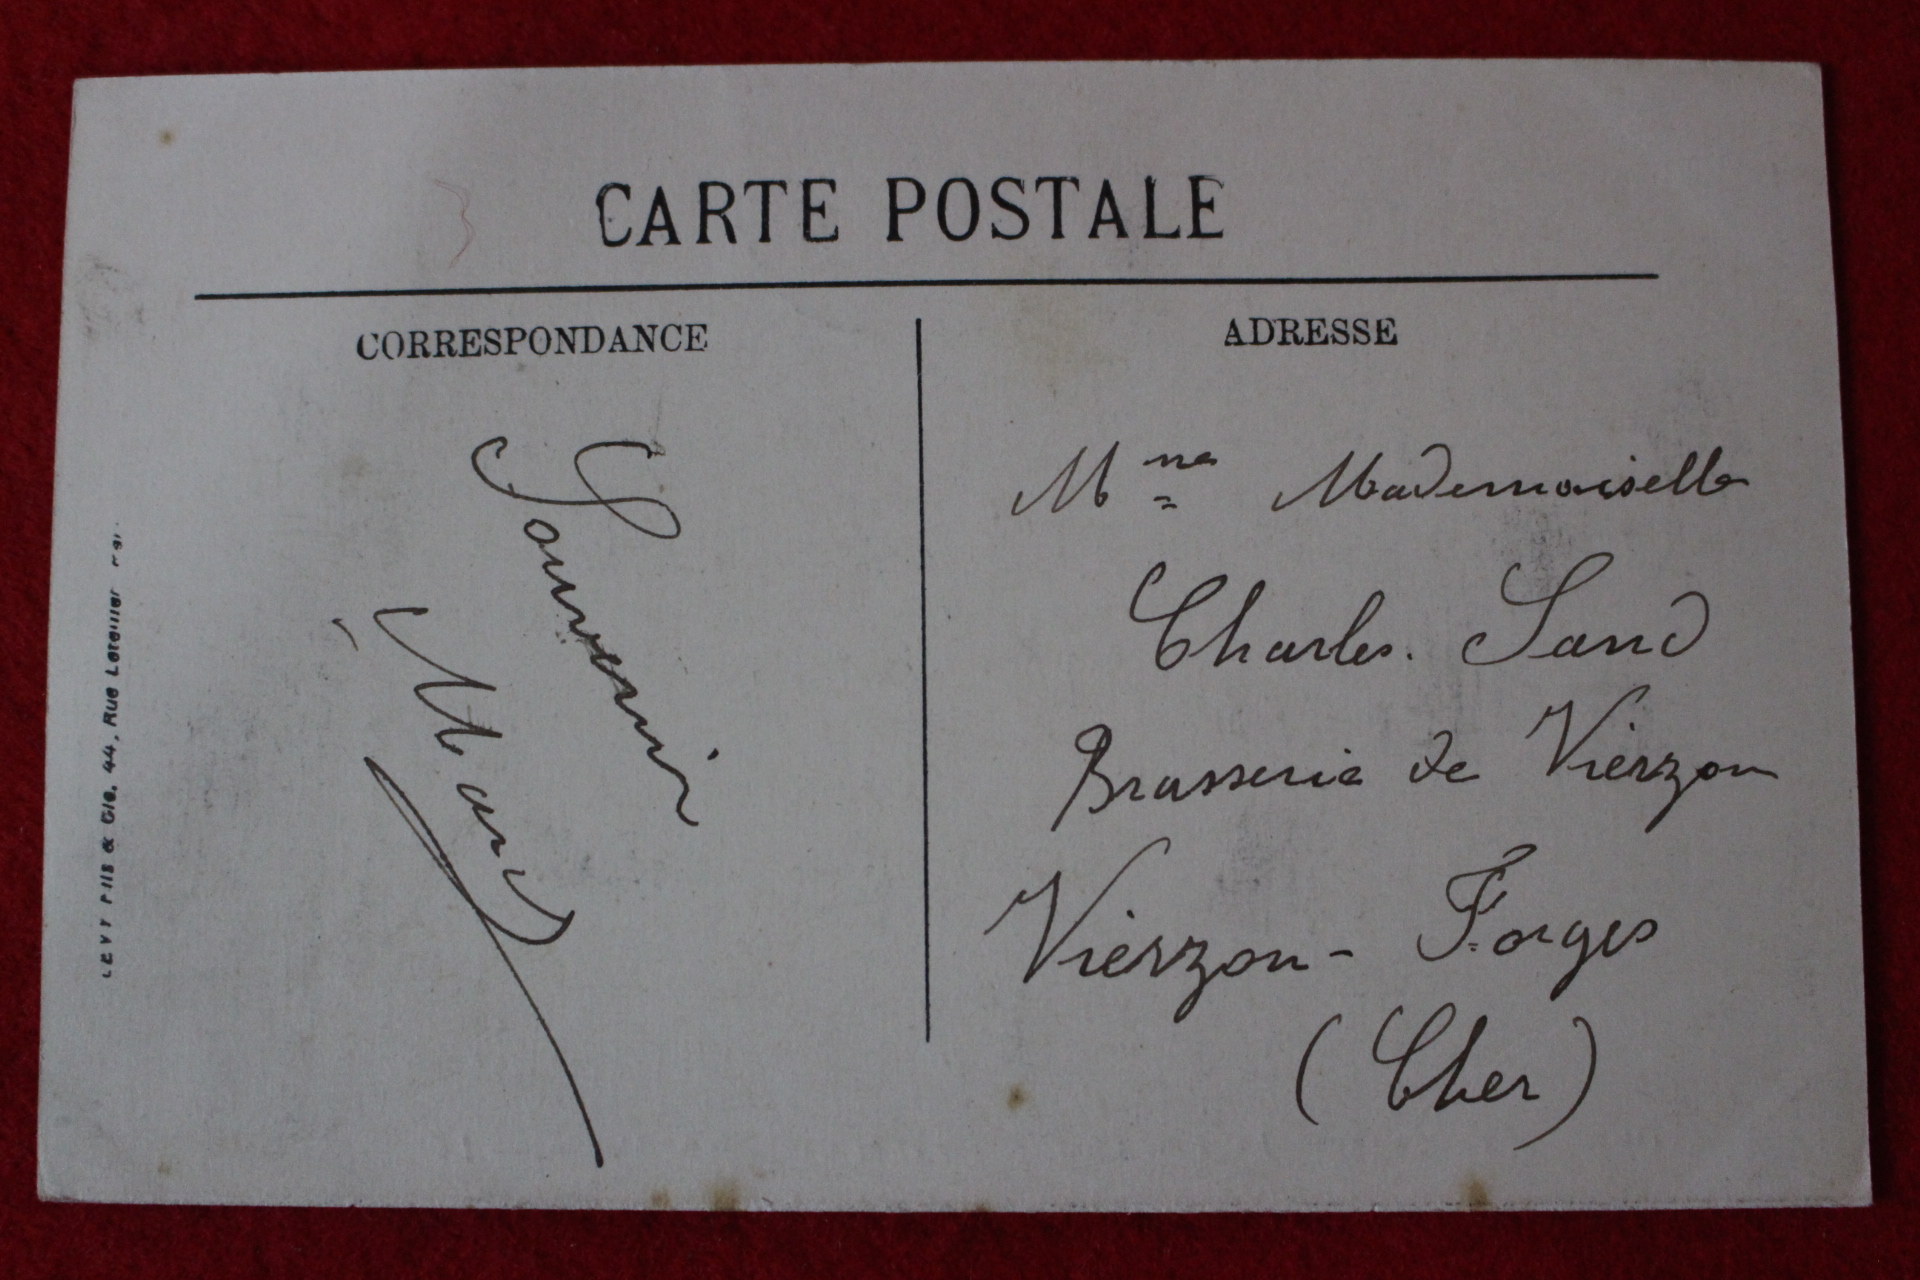 CARTE POSTALE
CORRESPONDANCE
ADRESSE
Souvenir
M
Mme Mademoiselle
Charles. Sand
Brasserie de Vierzon
Vierzon-Forges
(Cher)
LEVY FILS & Cie. 44, Rue Letellier